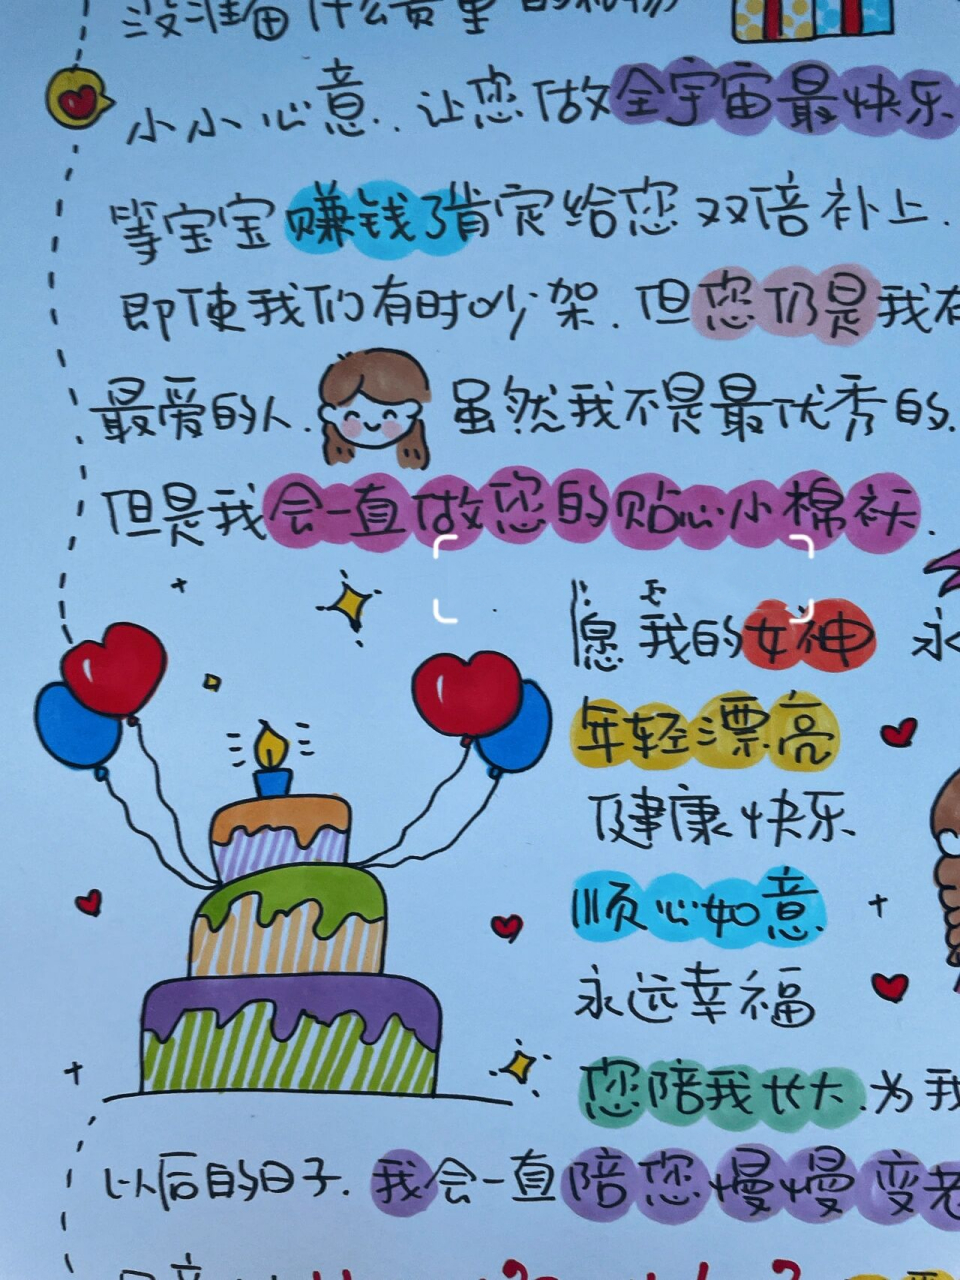 没准备什么贵重的礼物
小小心意.让您做全宇宙最快乐
等宝宝赚钱了肯定给您双倍补上.
即使我们有时吵架.但您仍是我
最爱的人.虽然我不是最优秀的.
但是我会一直做您的贴心小棉袄.
愿我的女神 永
年轻漂亮
健康快乐.
顺心如意.
永远幸福
您陪我长大.为我
以后的日子.我会一直陪您慢慢变老